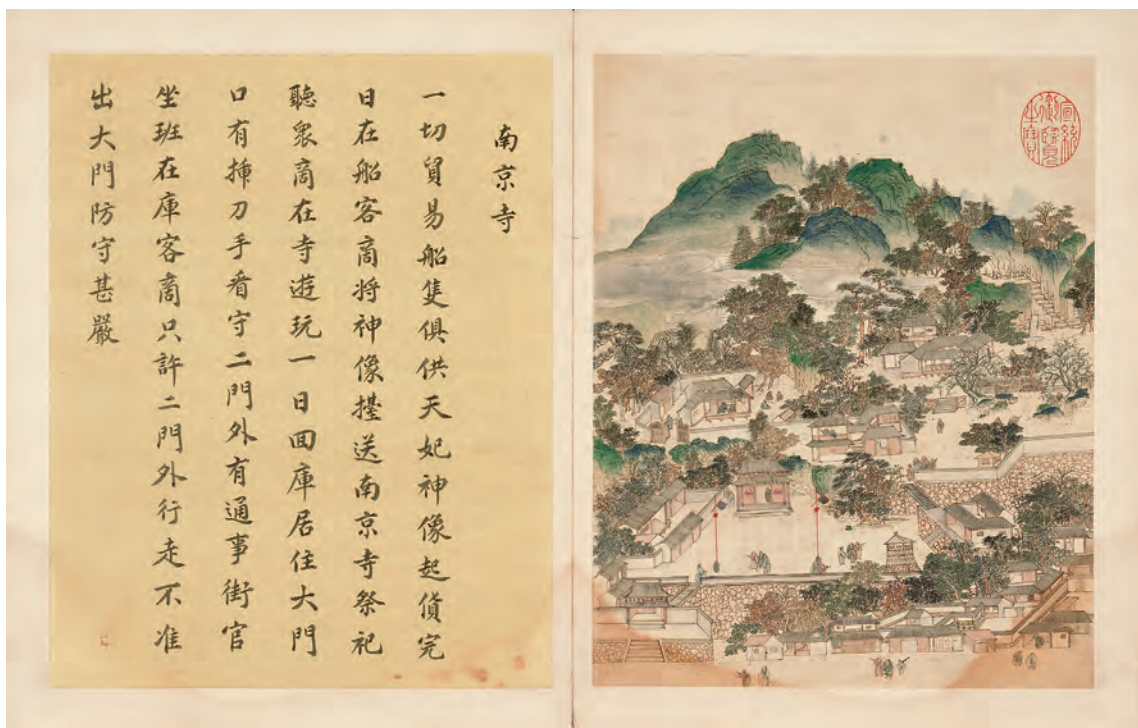 南京寺
一切貿易船隻俱供天妃神像起貨完
日在船客商將神像擡送南京寺祭祀
聽衆商在寺遊玩一日回庫居住大門
口有揷刀手看守二門外有通事街官
坐班在庫客商只許二門外行走不准
出大門防守甚嚴
宣統御覽之寶